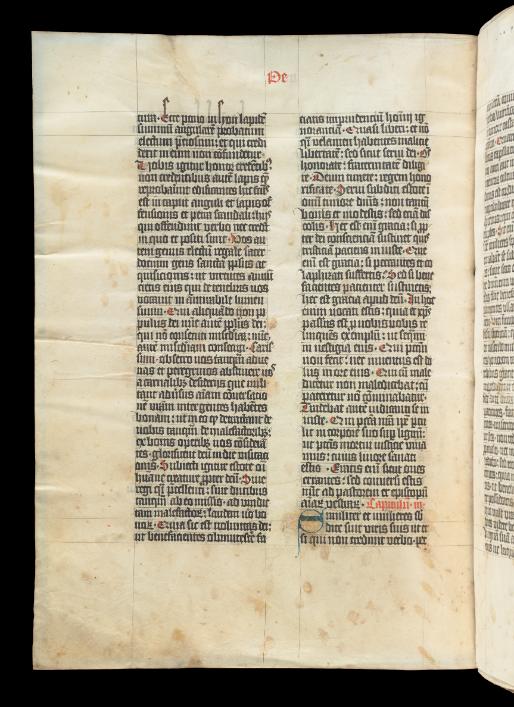 Pe
tura. Ecce pono in syon lapidē
summū angularē probatum
electum p̄ciosum: et qui credi
derit in eum non confundetur
Uobis igitur honor credētibꝫ
non credentibus autē lapis quē
reprobauerūt edificantes hic factꝰ
est in caput anguli et lapis of
fensionis et petra scandali: hijs
qui offendunt verbo nec credūt
in quo et positi sunt. Uos au
tem genus electū regale sacer
docium gens sancta ppl̄us ac
quisicionis: ut virtutes annūci
etis eius qui de tenebris vos
vocauit in admirabile lumen
suum. Qui aliquando non po
pulus dei nūc autē ppl̄us dei:
qui nō consecuti misc̄diam: nūc
autē misc̄diam consecuti. Caris
simi obsecro vos tanquā adue
nas et peregrinos abstinere vos
a carnalibꝫ desiderijs que mili
tant adūsus aīam cōuersatio
nē vrām inter gentes habētes
bonam: ut in eo qd̄ detrectāt de
vobis tanqm̄ de malefactoribꝫ:
ex bonis operibꝫ vos cōsiderā
tes glorificent deū in die visitati
onis. Subiecti igitur estote oī
humane creature ꝓpter deū. Siue
regi qͣsi p̄cellenti: siue ducibus
tanqm̄ ab eo missis ad vindic
tam malefactoꝝ: laudem vō bo
noꝝ. Quia sic est voluntas dei
ut benefacientes obmutescere fa
ciatis imprudenciū hoīnū ig
noranciā. Quasi liberi: et nō
qͣsi velamen habentes malicie
libertatē: sed sicut serui dei. Oēs
honorate: fraternitatē diligi
te. Deum timete: regem hono
rificate. Serui subditi estote ī
omī timore dnīs: non tantum
bonis et modestis: sed eciā dis
colis. Hec est enī gracia: si ꝓp
ter dei conscienciā sustinet quis
tristicias paciens iniuste. Que
enī est gracia: si peccantes et co
laphizati suffertis? Sed si bene
facientes pacienter sustinetis:
hec est gracia apud deū. In hoc
enim vocati estis: quia et xp̄s
passus est pro nobis vobis re
linquēs exemplū: ut seqmī
ni vestigia eius. Qui pctm̄
non fecit: nec inuentus est do
lus in ore eius. Qui cū male
diceret non maledicebat: cū
pateretur nō cōminabatur.
Tradebat autē iudicanti se in
iuste. Qui pctā nrā ip̄e ptu
lit in corpore suo sup lignū:
ut pctīs mortui iusticie viua
mus: cuius liuore sanati
estis. Eratis enī sicut oues
errantes: sed conuersi estis
nūc ad pastorem et episcopū
aīaꝝ vestraꝝ. Capitulū iij
Similiter et mulieres sb̄
dite sint viris suis ut et
si qui non credunt verbo per